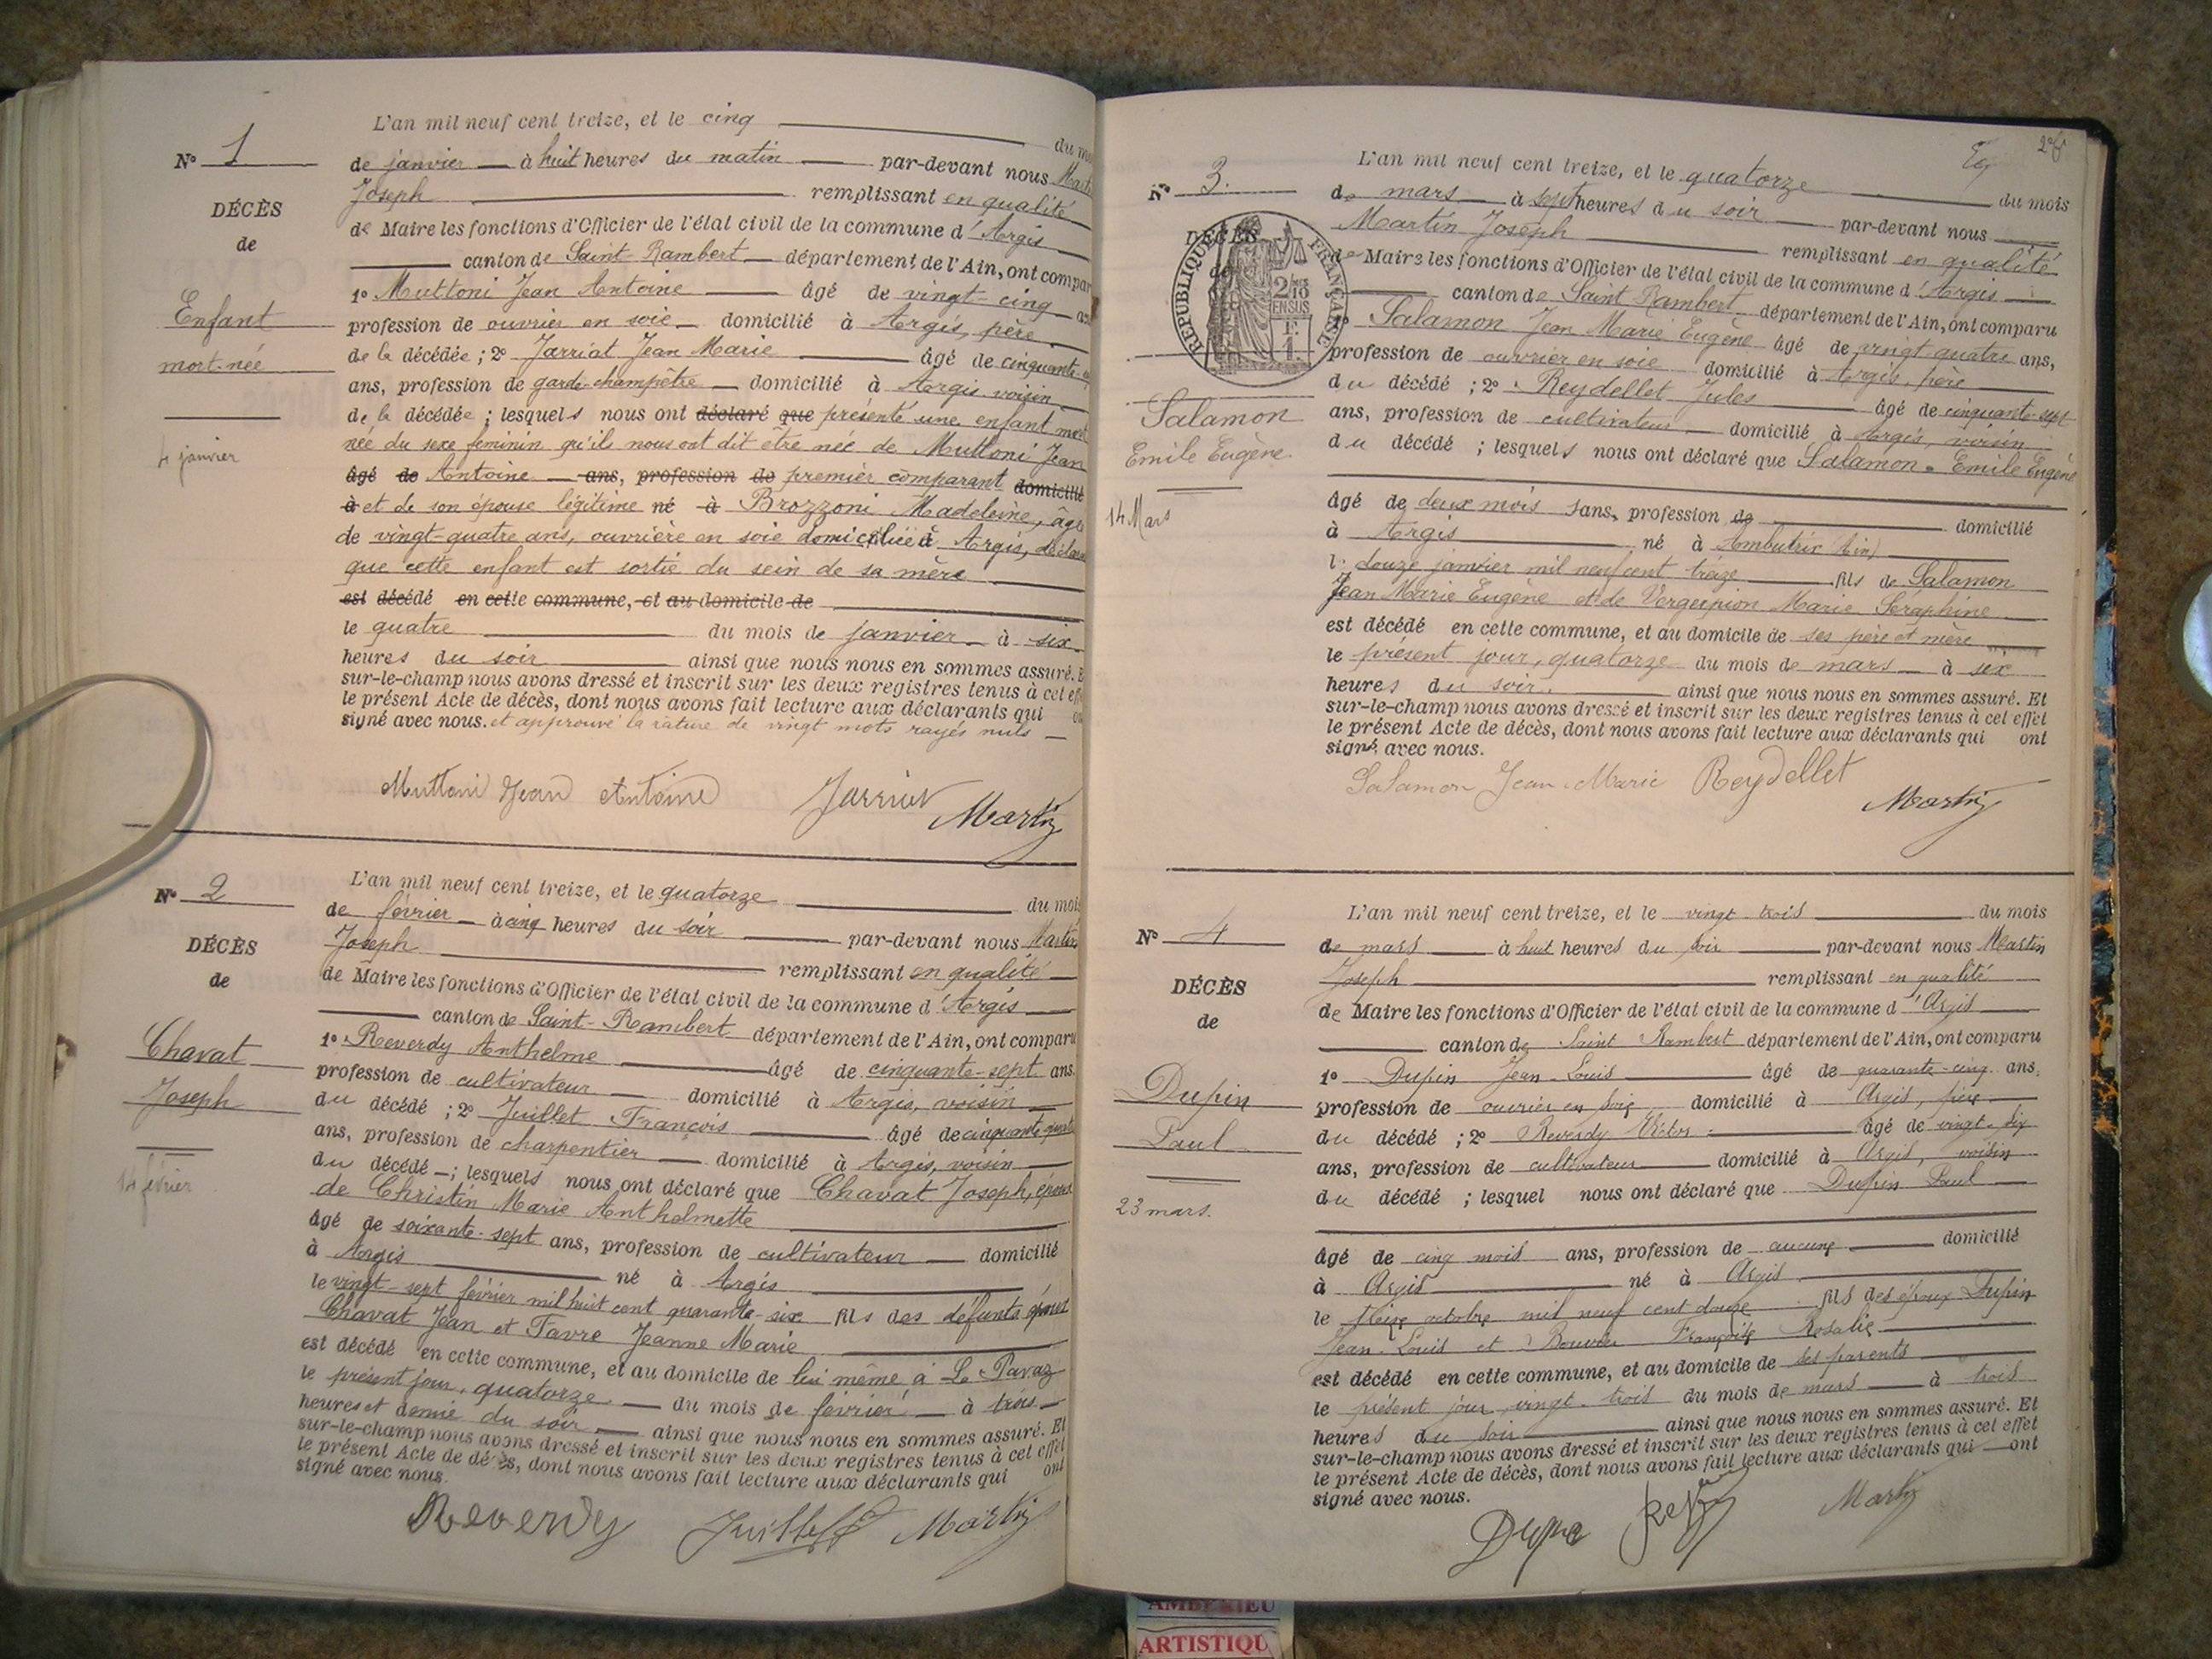 N° 1
DÉCÈS
de
Enfant
mort-née
4 janvier
L'an mil neuf cent treize, et le cinq du mois
de janvier à huit heures du matin par-devant nous Martin
Joseph remplissant en qualité
de Maire les fonctions d'Officier de l'état civil de la commune d'Argis
canton de Saint Rambert département de l'Ain, ont comparu
1° Muttoni Jean Antoine âgé de vingt-cinq ans
profession de ouvrier en soie domicilié à Argis, père
de la décédée ; 2° Jarriat Jean Marie âgé de cinquante
ans, profession de garde-champêtre domicilié à Argis voisin
de la décédée ; lesquels nous ont déclaré que présenté une enfant mort
née du sexe féminin qu'ils nous ont dit être née de Muttoni Jean
âgé de Antoine ans, profession de premier comparant domicilié
à et de son épouse légitime né à Brozzoni Madeleine, âgée
de vingt-quatre ans, ouvrière en soie domiciliée à Argis, déclare
que cette enfant est sortie du sein de sa mère
est décédé en cette commune, et au domicile de
le quatre du mois de janvier à six
heures du soir ainsi que nous nous en sommes assuré. Et
sur-le-champ nous avons dressé et inscrit sur les deux registres tenus à cet effet
le présent Acte de décès, dont nous avons fait lecture aux déclarants qui ont
signé avec nous. et approuvé la rature de vingt mots rayés nuls
Muttoni Jean Antoine Jarriat Martin
N° 2
DÉCÈS
de
Chavat
Joseph
14 février
L'an mil neuf cent treize, et le quatorze du mois
de février à cinq heures du soir par-devant nous Martin
Joseph remplissant en qualité
de Maire les fonctions d'Officier de l'état civil de la commune d'Argis
canton de Saint-Rambert département de l'Ain, ont comparu
1° Reverdy Anthelme âgé de cinquante-sept ans
profession de cultivateur domicilié à Argis, voisin
du décédé ; 2° Juillet François âgé de cinquante-quatre
ans, profession de charpentier domicilié à Argis, voisin
du décédé ; lesquels nous ont déclaré que Chavat Joseph, époux
de Christin Marie Anthelmette
âgé de soixante-sept ans, profession de cultivateur domicilié
à Argis né à Argis
le vingt-sept février mil huit cent quarante-six fils des défunts époux
Chavat Jean et Favre Jeanne Marie
est décédé en cette commune, et au domicile de lui même à Le Pavaz
le présent jour, quatorze du mois de février à trois
heures et demie du soir ainsi que nous nous en sommes assuré. Et
sur-le-champ nous avons dressé et inscrit sur les deux registres tenus à cet effet
le présent Acte de décès, dont nous avons fait lecture aux déclarants qui ont
signé avec nous.
Reverdy Juillet Martin
N° 3.
DÉCÈS
de
RÉPUBLIQUE FRANÇAISE
2/10
EN SUS
1 F.
Salamon
Emile Eugène
14 Mars
L'an mil neuf cent treize, et le quatorze du mois
de mars à sept heures du soir par-devant nous
Martin Joseph remplissant en qualité
de Maire les fonctions d'Officier de l'état civil de la commune d'Argis
canton de Saint Rambert département de l'Ain, ont comparu
Salamon Jean Marie Eugène âgé de vingt quatre ans,
profession de ouvrier en soie domicilié à Argis, père
du décédé ; 2° Reydellet Jules âgé de cinquante-sept
ans, profession de cultivateur domicilié à Argis, voisin
du décédé ; lesquels nous ont déclaré que Salamon Emile Eugène
âgé de deux mois sans, profession de domicilié
à Argis né à Ambutrix (Ain)
le douze janvier mil neuf cent treize fils de Salamon
Jean Marie Eugène et de Vergunion Marie Séraphine
est décédé en cette commune, et au domicile de ses père et mère
le présent jour, quatorze du mois de mars à six
heures du soir. ainsi que nous nous en sommes assuré. Et
sur-le-champ nous avons dressé et inscrit sur les deux registres tenus à cet effet
le présent Acte de décès, dont nous avons fait lecture aux déclarants qui ont
signé avec nous.
Salamon Jean Marie Reydellet Martin
N° 4
DÉCÈS
de
Dupin
Paul
23 mars.
L'an mil neuf cent treize, et le vingt trois du mois
de mars à huit heures du soir par-devant nous Martin
Joseph remplissant en qualité
de Maire les fonctions d'Officier de l'état civil de la commune d'Argis
canton de Saint Rambert département de l'Ain, ont comparu
1° Dupin Jean-Louis âgé de quarante-cinq ans,
profession de ouvrier en soie domicilié à Argis, père
du décédé ; 2° Reverdy Victor âgé de vingt-six
ans, profession de cultivateur domicilié à Argis, voisin
du décédé ; lesquel nous ont déclaré que Dupin Paul
âgé de cinq mois ans, profession de aucune domicilié
à Argis né à Argis
le treize octobre mil neuf cent douze fils des époux Dupin
Jean-Louis et Bouvier Françoise Rosalie
est décédé en cette commune, et au domicile de ses parents
le présent jour vingt-trois du mois de mars à trois
heures du soir ainsi que nous nous en sommes assuré. Et
sur-le-champ nous avons dressé et inscrit sur les deux registres tenus à cet effet
le présent Acte de décès, dont nous avons fait lecture aux déclarants qui ont
signé avec nous.
Dupin Martin
ARTISTIQU